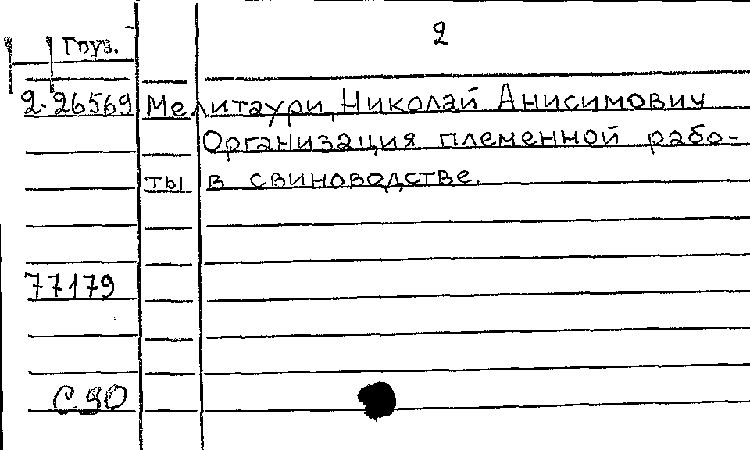 Груз.
2
2-26569 Мелитаури, Николай Анисимович
Организация племенной рабо-
ты в свиноводстве.
77179
С 90